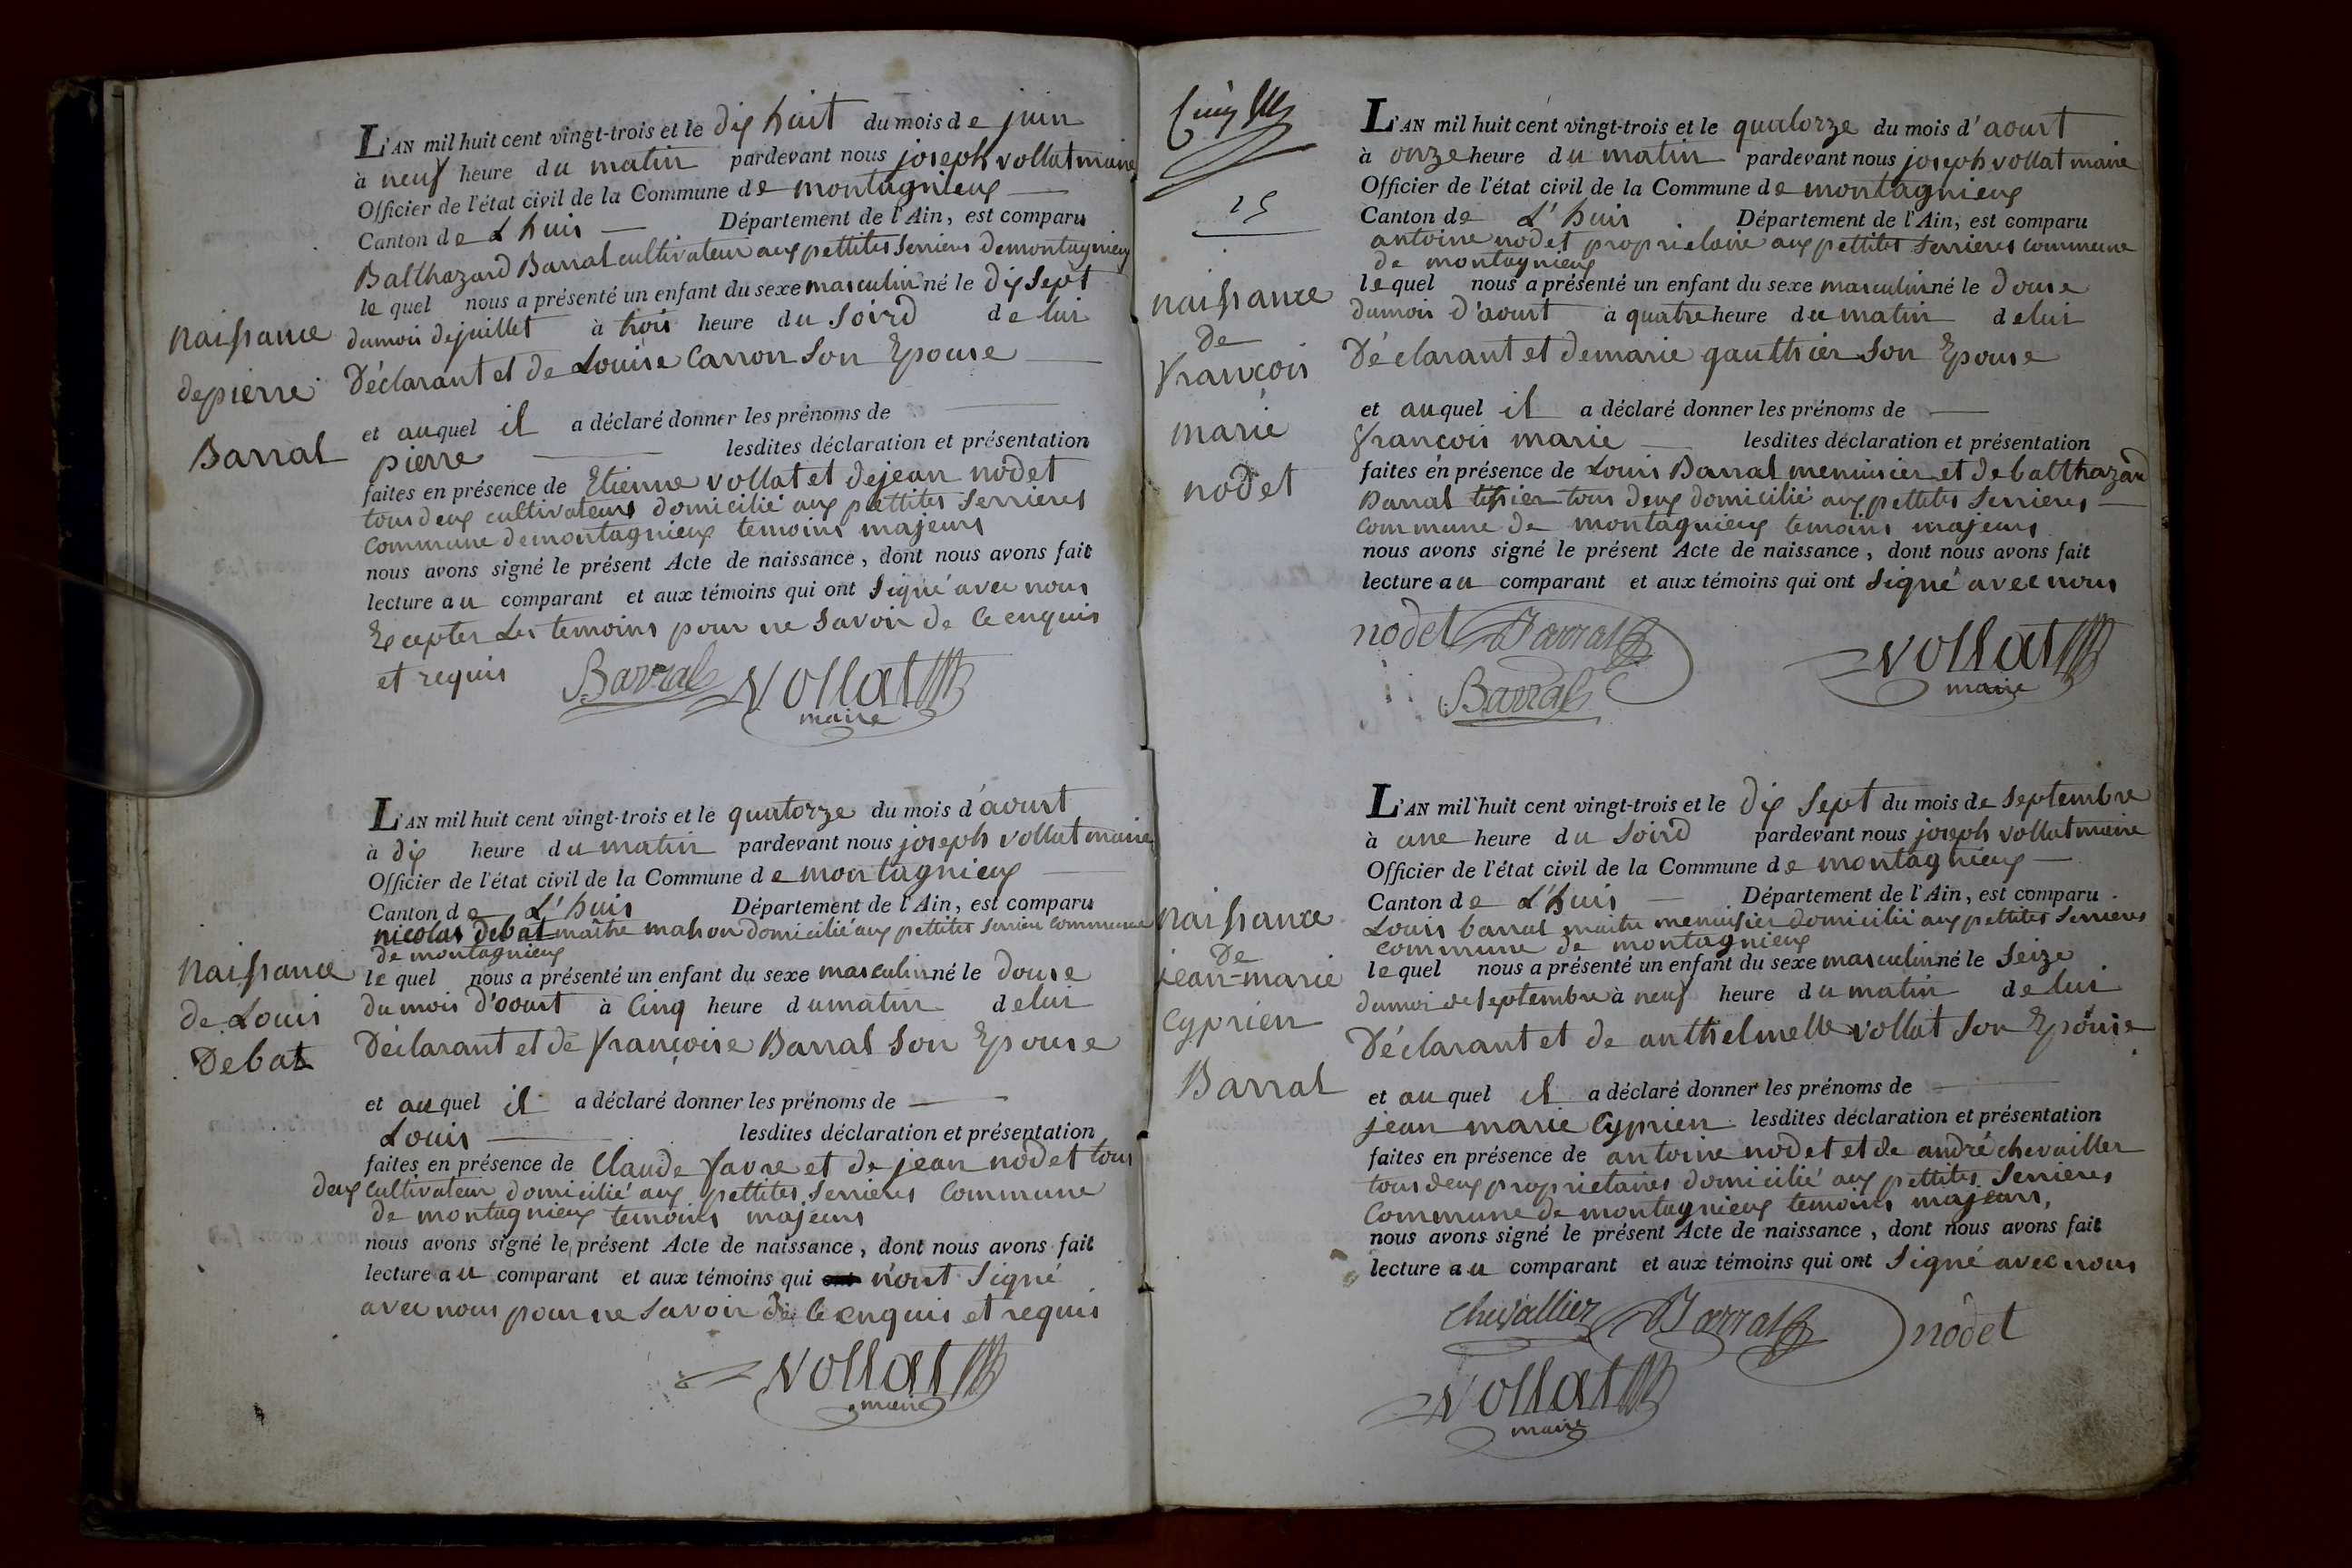 L'AN mil huit cent vingt-trois et le dix huit du mois de juin
à neuf heure du matin pardevant nous joseph vollat maire
Officier de l'état civil de la Commune de montagnieux
Canton de L huis Département de l'Ain, est comparu
Balthazard Barral cultivateur aux pettites Serrieres demontagnieux
le quel nous a présenté un enfant du sexe masculin né le dix sept
dumois dejuillet à trois heure du Soird de lui
Déclarant et de Louise Carron Son Epouse
et auquel il a déclaré donner les prénoms de
pierre lesdites déclaration et présentation
faites en présence de Etienne vollat et dejean nodet
tous deux cultivateurs domicilié aux pettites Serrieres
Commune demontagnieux temoins majeurs
nous avons signé le présent Acte de naissance, dont nous avons fait
lecture au comparant et aux témoins qui ont Signé avec nous
Excepter Les temoins pour ne Savoir de Ce enquis
et requis Barral vollat
maire
naissance
depierre
Barral
L'AN mil huit cent vingt-trois et le quatorze du mois d'aoust
à dix heure du matin pardevant nous joseph vollat maire
Officier de l'état civil de la Commune de montagnieux
Canton de L'huis Département de l'Ain, est comparu
nicolas debat maitre mahon domicilié aux pettites Serriere Commune
de montagnieux
le quel nous a présenté un enfant du sexe masculin né le douse
du mois d'aoust à Cinq heure dumatin delui
Déclarant et de françoise Barral Son Epouse
et auquel il a déclaré donner les prénoms de
Louis lesdites déclaration et présentation
faites en présence de Claude favre et de jean nodet tous
deux Cultivateur domicilié aux pettites Serrieres Commune
de montagnieux temoins majeurs
nous avons signé le présent Acte de naissance, dont nous avons fait
lecture au comparant et aux témoins qui n'ont Signé
avec nous pour ne Savoir de Ce enquis et requis
vollat
maire
naissance
de Louis
Debat
25
L'AN mil huit cent vingt-trois et le quatorze du mois d'aoust
à onze heure du matin pardevant nous joseph vollat maire
Officier de l'état civil de la Commune de montagnieux
Canton de L'huis Département de l'Ain, est comparu
antoine nodet proprietaire aux pettites Serrieres commune
de montagnieux
le quel nous a présenté un enfant du sexe masculin né le douse
dumois d'aoust à quatre heure du matin delui
Déclarant et demarie gauthier Son Epouse
et auquel il a déclaré donner les prénoms de
françois marie lesdites déclaration et présentation
faites en présence de Louis Barral menuisier et de balthazard
Barral tissier tous deux domicilié aux pettites Serrieres
Commune de montagnieux temoins majeurs
nous avons signé le présent Acte de naissance, dont nous avons fait
lecture au comparant et aux témoins qui ont Signé avec nous
nodet Barral vollat
Barral maire
naissance
de
françois
marie
nodet
L'AN mil huit cent vingt-trois et le dix Sept du mois de Septembre
à une heure du Soird pardevant nous joseph vollat maire
Officier de l'état civil de la Commune de montagnieux
Canton de L'huis Département de l'Ain, est comparu
Louis barral maitre menuisier domicilié aux pettites Serrieres
commune de montagnieux
le quel nous a présenté un enfant du sexe masculin né le Seize
dumoi de Septembre à neuf heure du matin de lui
Déclarant et de anthelmelle vollat Son Epouse
et au quel il a déclaré donner les prénoms de
jean marie Cyprien lesdites déclaration et présentation
faites en présence de antoine nodet et de andré chevailler
tous deux proprietaires domicilié aux pettites Serrieres
Commune de montagnieux temoins majeurs,
nous avons signé le présent Acte de naissance, dont nous avons fait
lecture au comparant et aux témoins qui ont Signé avec nous
Chevallier Barral nodet
vollat
maire
naissance
De
jean-marie
Cyprien
Barral